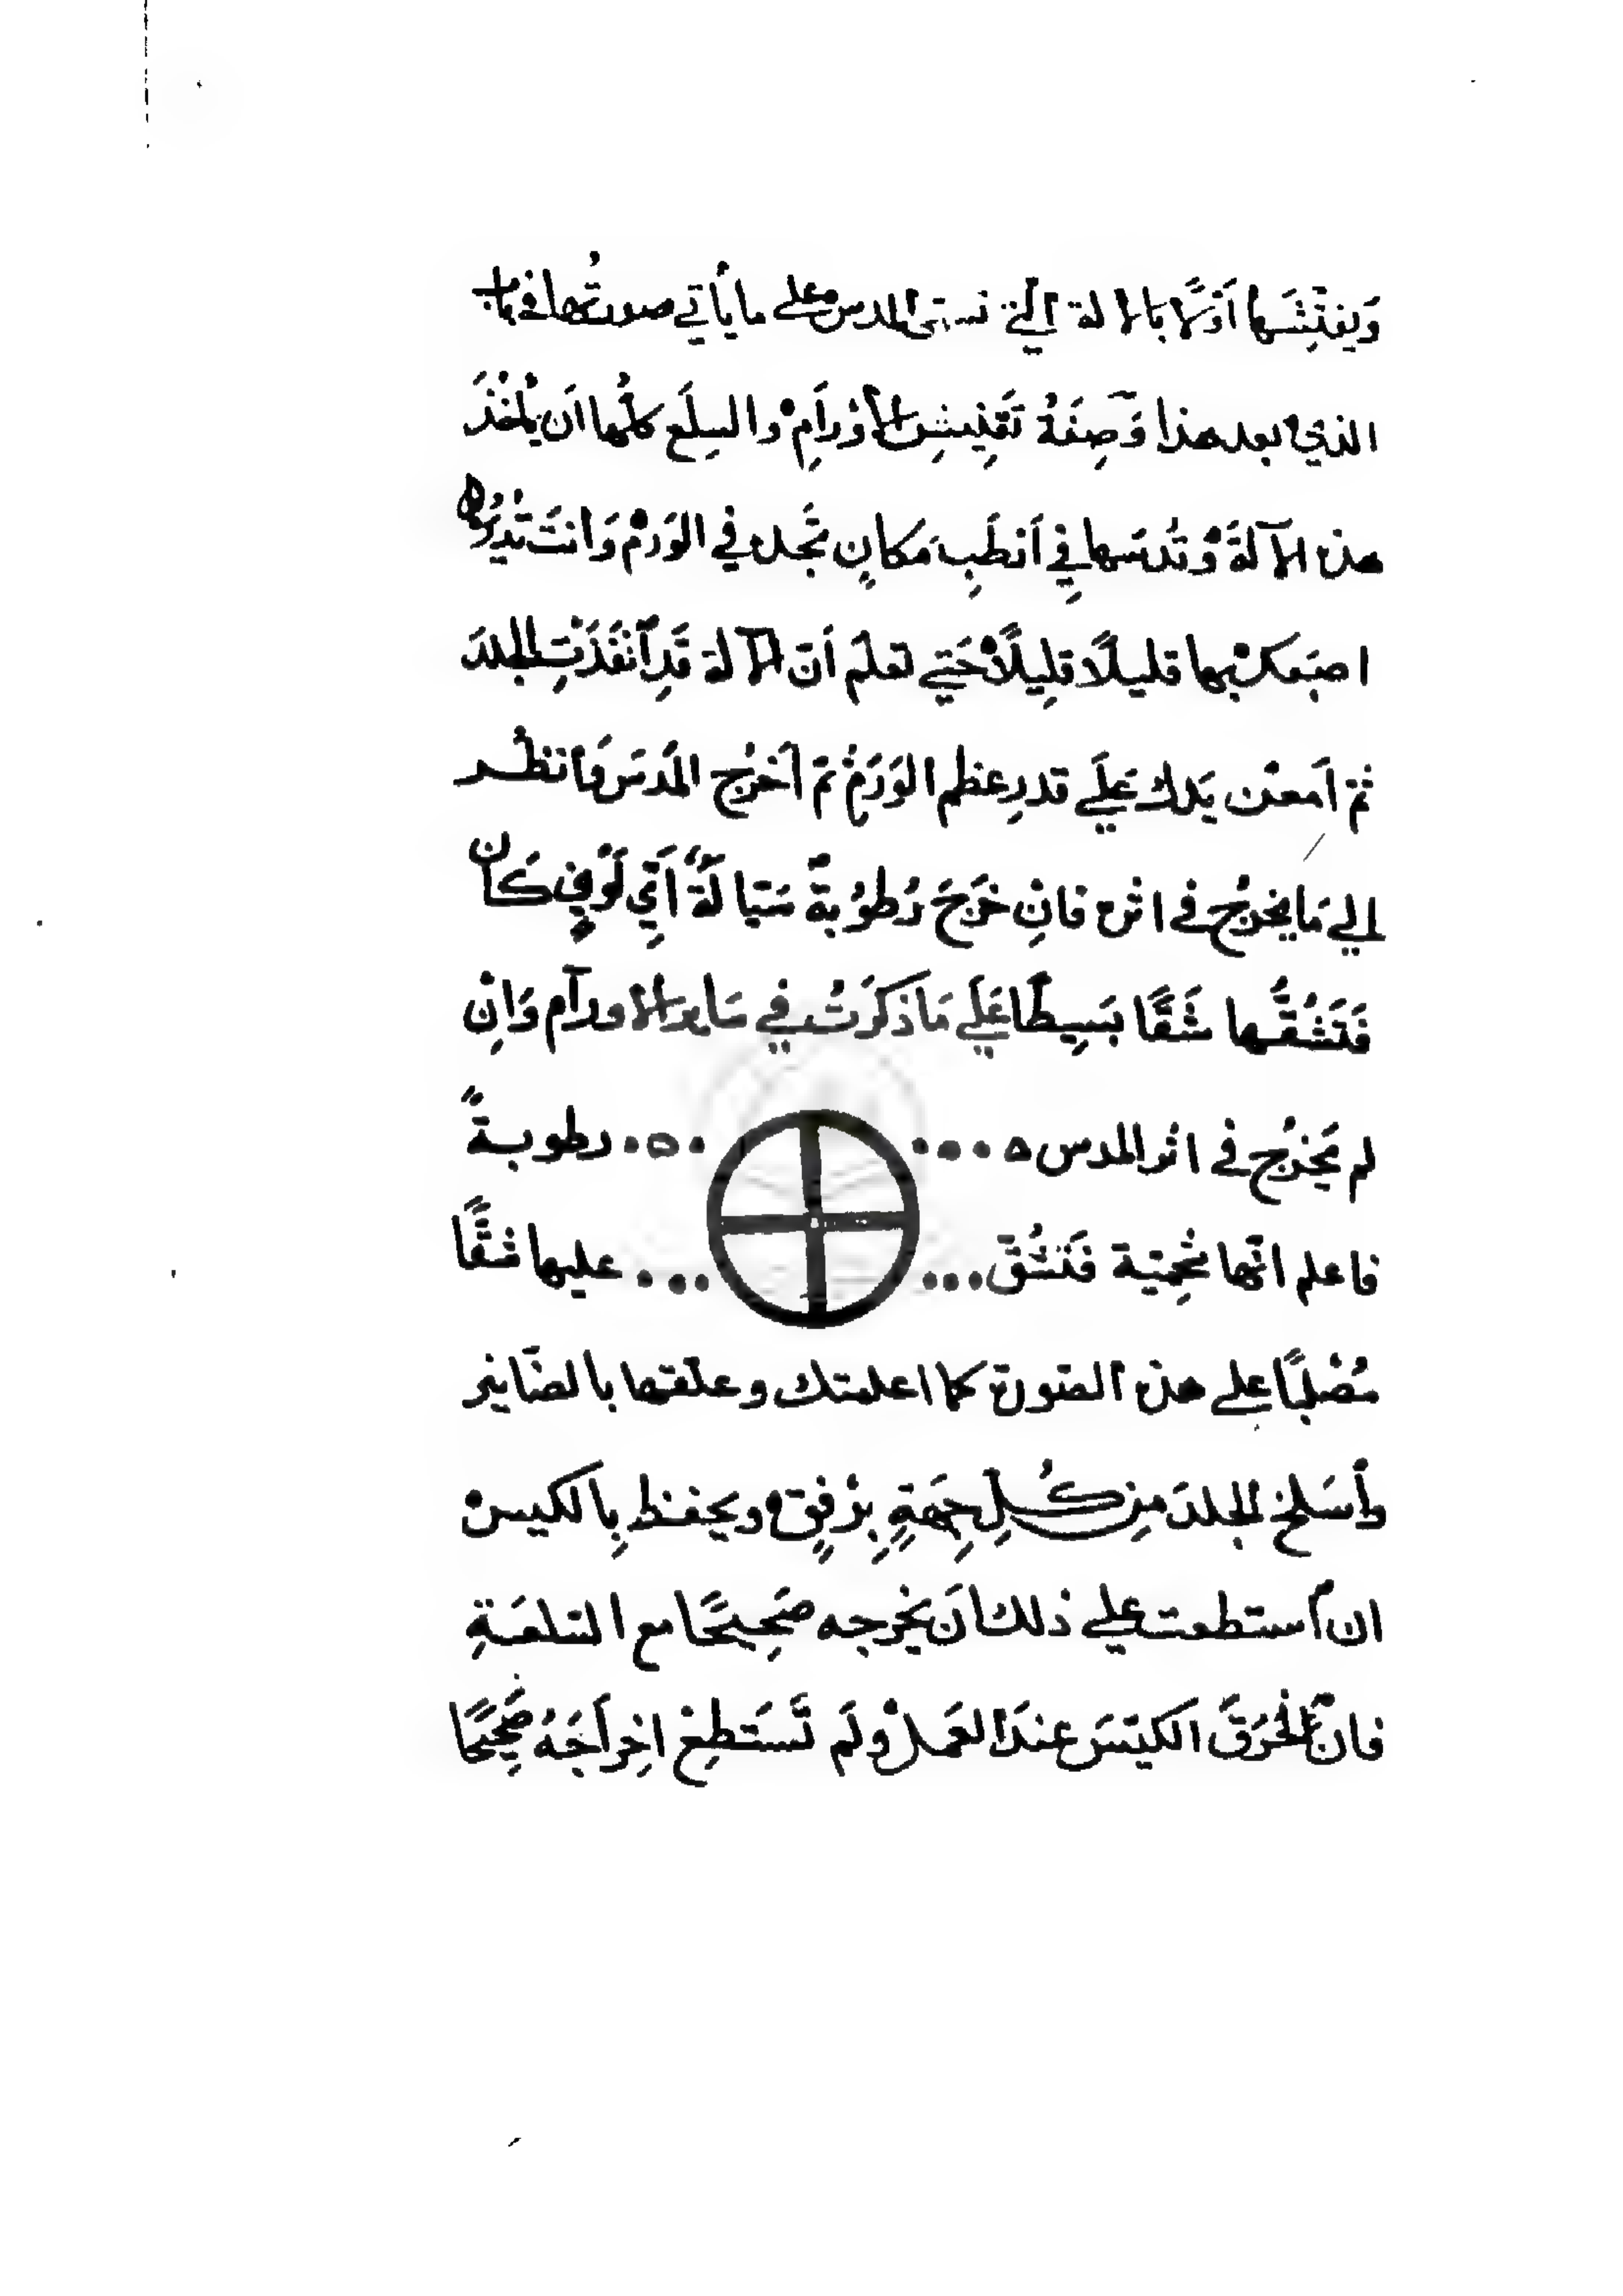 وَيفتِّشَها اَوّلًا بالالة الّتي تسمّى المدس على ما يأتي صورتُها في باب
الذي بعد هذا وَصِفَةُ تَفتِيشِ الأوْرَامِ والسِلَعِ كلُّها اَن ياخُذَ
هذه الآلةَ وَتُدسّها في اَرطَبِ مَكانٍ تجَده في الوَرَمْ وَانتَ تُدِيرُ
اصبَعك بها قليلًا قلِيلًا حَتي تعلم اَنّ الآلة قَدِ اَنفَذَتِ الجلدَ
ثمّ اَمعن يَدك عَلَي قدرِ عظم الوَرَمِ ثمّ اَخرُج المَدسَّ وَانظُر
الي مَا يخرُج في اثره فانِ خَرَجَ رُطوُبةٌ سَيّالةٌ اَيِّ لَوْنٍ كاَن
فَتَشُقُّها شَقًّا بَسِيطًا عَلَي مَا ذكَرَتُ في سَاير الاورآم وَانِ
لم يَخرُج في اثر المدس رطوبةً
فاعلم انّها شحِميّة فَتشُقّ عليها شقًّا
مُصْلبًا علي هذه الصّورة كما اعلمتك وعلّقها بالصّنانير
وأسَلخ الجلدَ مِن كُلِ جِهَةٍ بِرْفِقٍ ويحفظ بِالكيس
ان اَستطعت علي ذلك اَن يخرجه صَحِيحًا مع السّلعَةِ
فان اَنخُرَقَ الكيسَ عندَ العَمل ولَم تَستَطِعْ اخِراَجَهُ صَحِيحًا